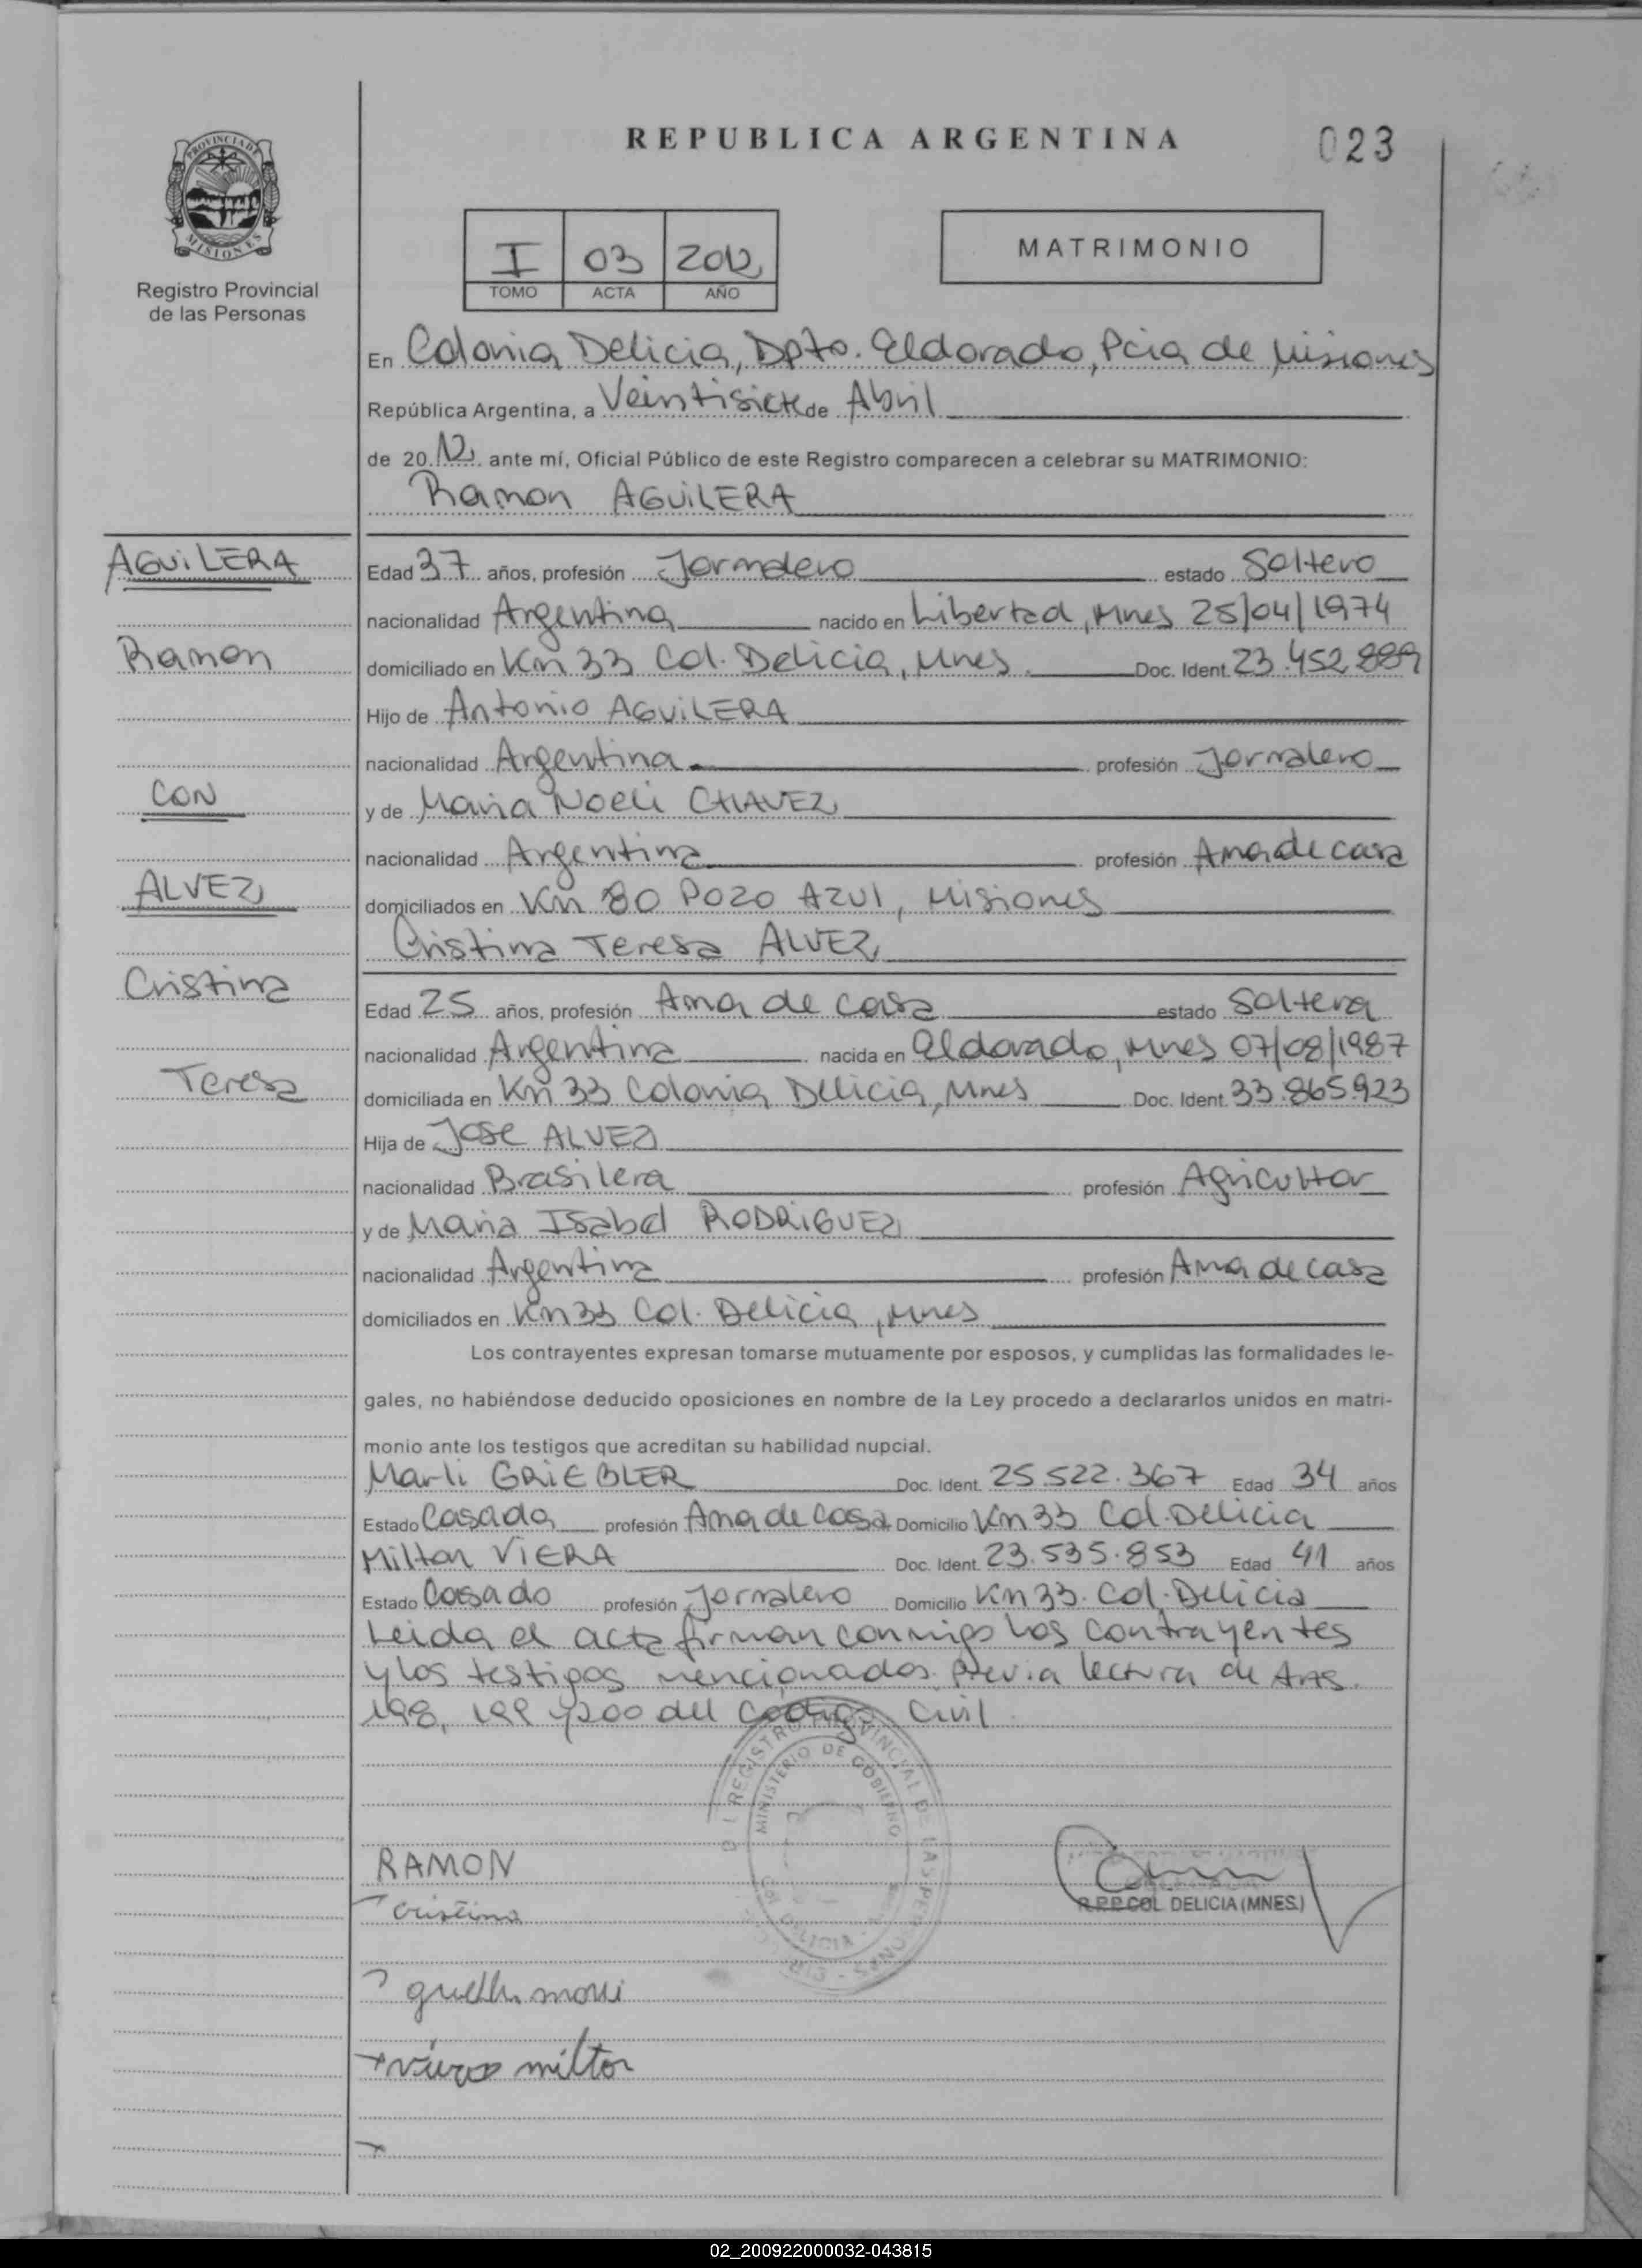 REPUBLICA ARGENTINA
023
PROVINCIA DE
MISIONES
Registro Provincial
de las Personas
I 03 2012
TOMO ACTA AÑO
MATRIMONIO
En Colonia Delicia, Dpto. Eldorado, Pcia de Misiones
República Argentina, a Veintisiete de Abril
de 2012 ante mí, Oficial Público de este Registro comparecen a celebrar su MATRIMONIO:
Ramon AGUILERA
AGUILERA
Edad 37 años, profesión Jornalero estado Soltero
nacionalidad Argentina nacido en Libertad, Mnes 25/04/1974
Ramon
domiciliado en Km 33 Col. Delicia, Mnes. Doc. Ident. 23.452.889
Hijo de Antonio AGUILERA
nacionalidad Argentina profesión Jornalero
CON
y de Maria Noeli CHAVEZ
nacionalidad Argentina profesión Ama de casa
ALVEZ
domiciliados en Km 80 Pozo AZUl, Misiones
Cristina Teresa ALVEZ
Cristina
Edad 25 años, profesión Ama de casa estado Soltera
nacionalidad Argentina nacida en Eldorado, Mnes 07/08/1987
Teresa
domiciliada en Km 33 Colonia Delicia, Mnes Doc. Ident. 33.865.923
Hija de Jose ALVEZ
nacionalidad Brasilera profesión Agricultor
y de Maria Isabel RODRIGUEZ
nacionalidad Argentina profesión Ama de casa
domiciliados en Km 33 Col. Delicia, Mnes
Los contrayentes expresan tomarse mutuamente por esposos, y cumplidas las formalidades le-
gales, no habiéndose deducido oposiciones en nombre de la Ley procedo a declararlos unidos en matri-
monio ante los testigos que acreditan su habilidad nupcial.
Marli GRIEBLER Doc. Ident. 25.522.367 Edad 34 años
Estado Casada profesión Ama de casa Domicilio Km 33 Col. Delicia
Milton VIERA Doc. Ident. 23.535.853 Edad 41 años
Estado Casado profesión Jornalero Domicilio Km 33. Col. Delicia
Leida el acta firman conmigo los contrayentes
y los testigos mencionados. Previa lectura de Arts.
198, 199 y 200 del Codigo Civil
REGISTRO PROVINCIAL DE LAS PERSONAS
MINISTERIO DE GOBIERNO
COL DELICIA
RAMON
R.P.P. COL. DELICIA (MNES.)
cristina
milton
02_200922000032-043815